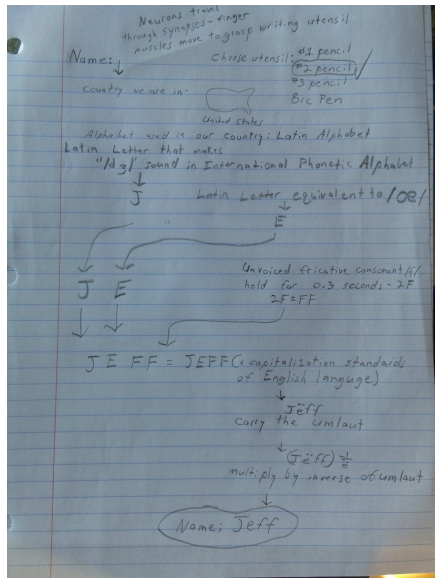 Neurons travel
through synapses - finger
muscles move to grasp writing utensil
Name:
Choose utensil: #1 pencil
#2 pencil
#3 pencil
Bic Pen
Country we are in:
United States
Alphabet used in our country: Latin Alphabet
Latin Letter that makes
"/dʒ/" sound in International Phonetic Alphabet
J
Latin Letter equivalent to /oe/
E
J E
Unvoiced fricative consonant
hold for 0.3 seconds - 2F
2F = FF
J E FF = JEFF (x capitalization standards
of English languge)
Jëff
Carry the umlaut
(Jëff)
Multiply by inverse of umlaut
Name; Jeff